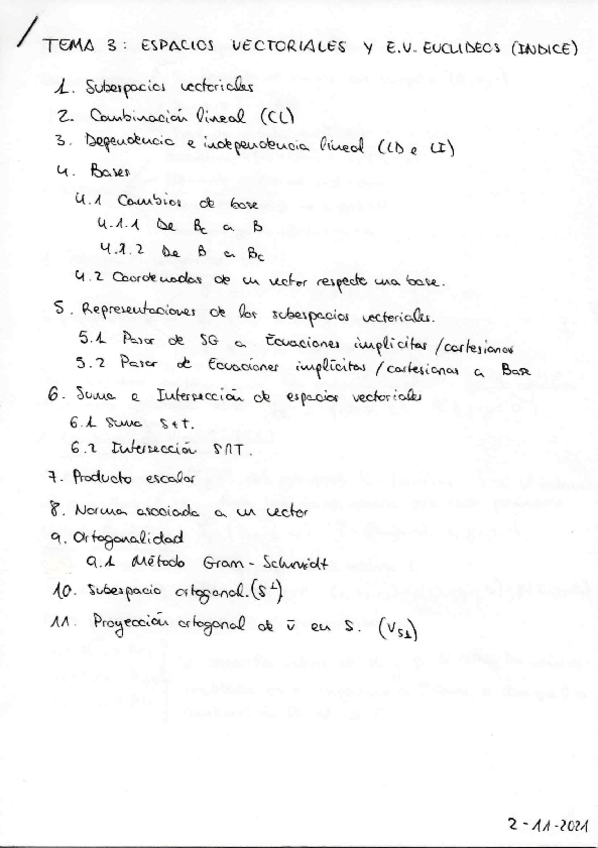 TEMA 3: ESPACIOS VECTORIALES Y E.V. EUCLIDEOS (INDICE)
1. Subespacios vectoriales
2. Combinación lineal (CL)
3. Dependencia e independencia lineal (LD e LI)
4. Bases
4.1 Cambios de base
4.1.1 De Bc a B
4.1.2 De B a Bc
4.2 Coordenadas de un vector respecto una base.
5. Representaciones de los subespacios vectoriales.
5.1 Pasar de SG a Ecuaciones implícitas/cartesianas
5.2 Pasar de Ecuaciones implícitas/cartesianas a Base
6. Suma e Intersección de espacios vectoriales
6.1 Suma S+T.
6.2 Intersección S∩T.
7. Producto escalar
8. Norma asociada a un vector
9. Ortogonalidad
9.1 Método Gram-Schmidt
10. Subespacio ortogonal. (S⊥)
11. Proyección ortogonal de v̄ en S. (VS⊥)
2-11-2021